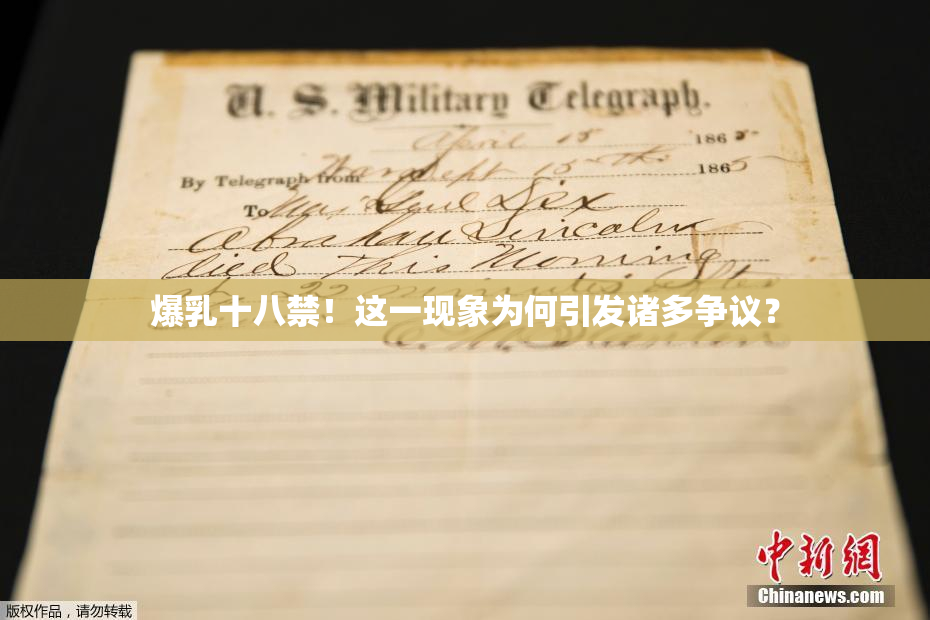 U. S. Military Telegraph.
April 15 1865
By Telegraph from War Dept 15th 1865
To Maj Genl Dix
Abraham Lincoln
died This Morning
at 22 minutes after
爆乳十八禁！这一现象为何引发诸多争议？
E. M. Stanton
中新网
Chinanews.com
版权作品，请勿转载